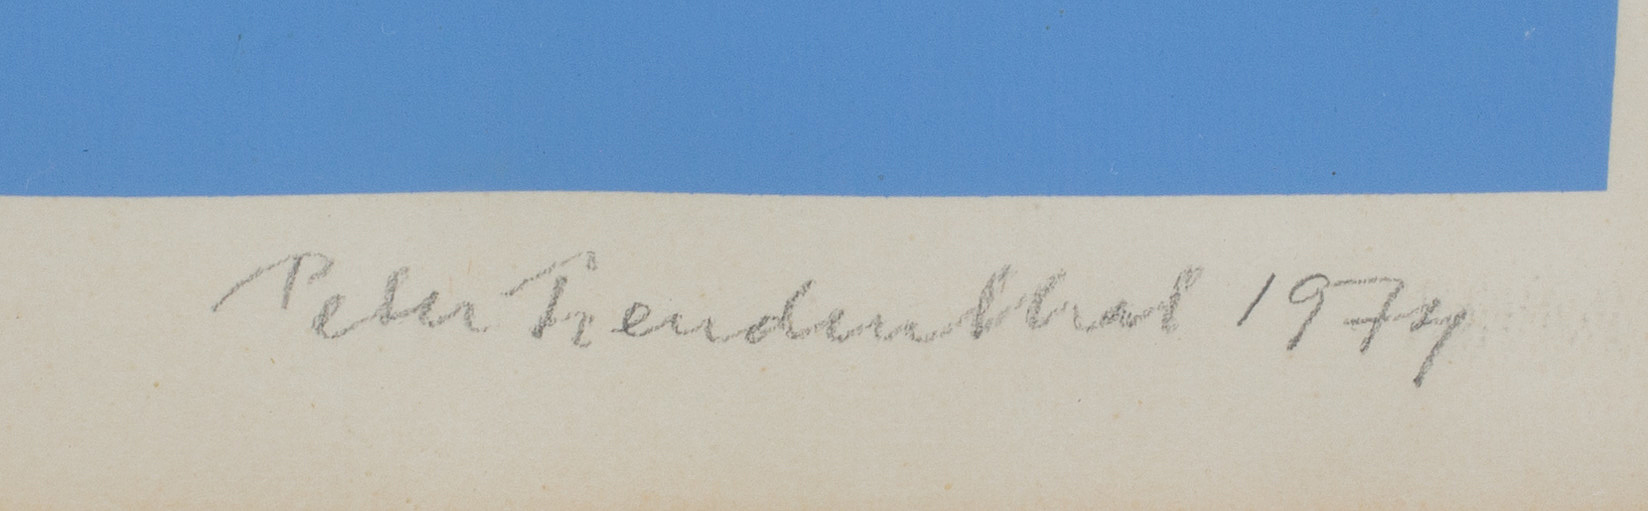 Peter Freudenthal 1974